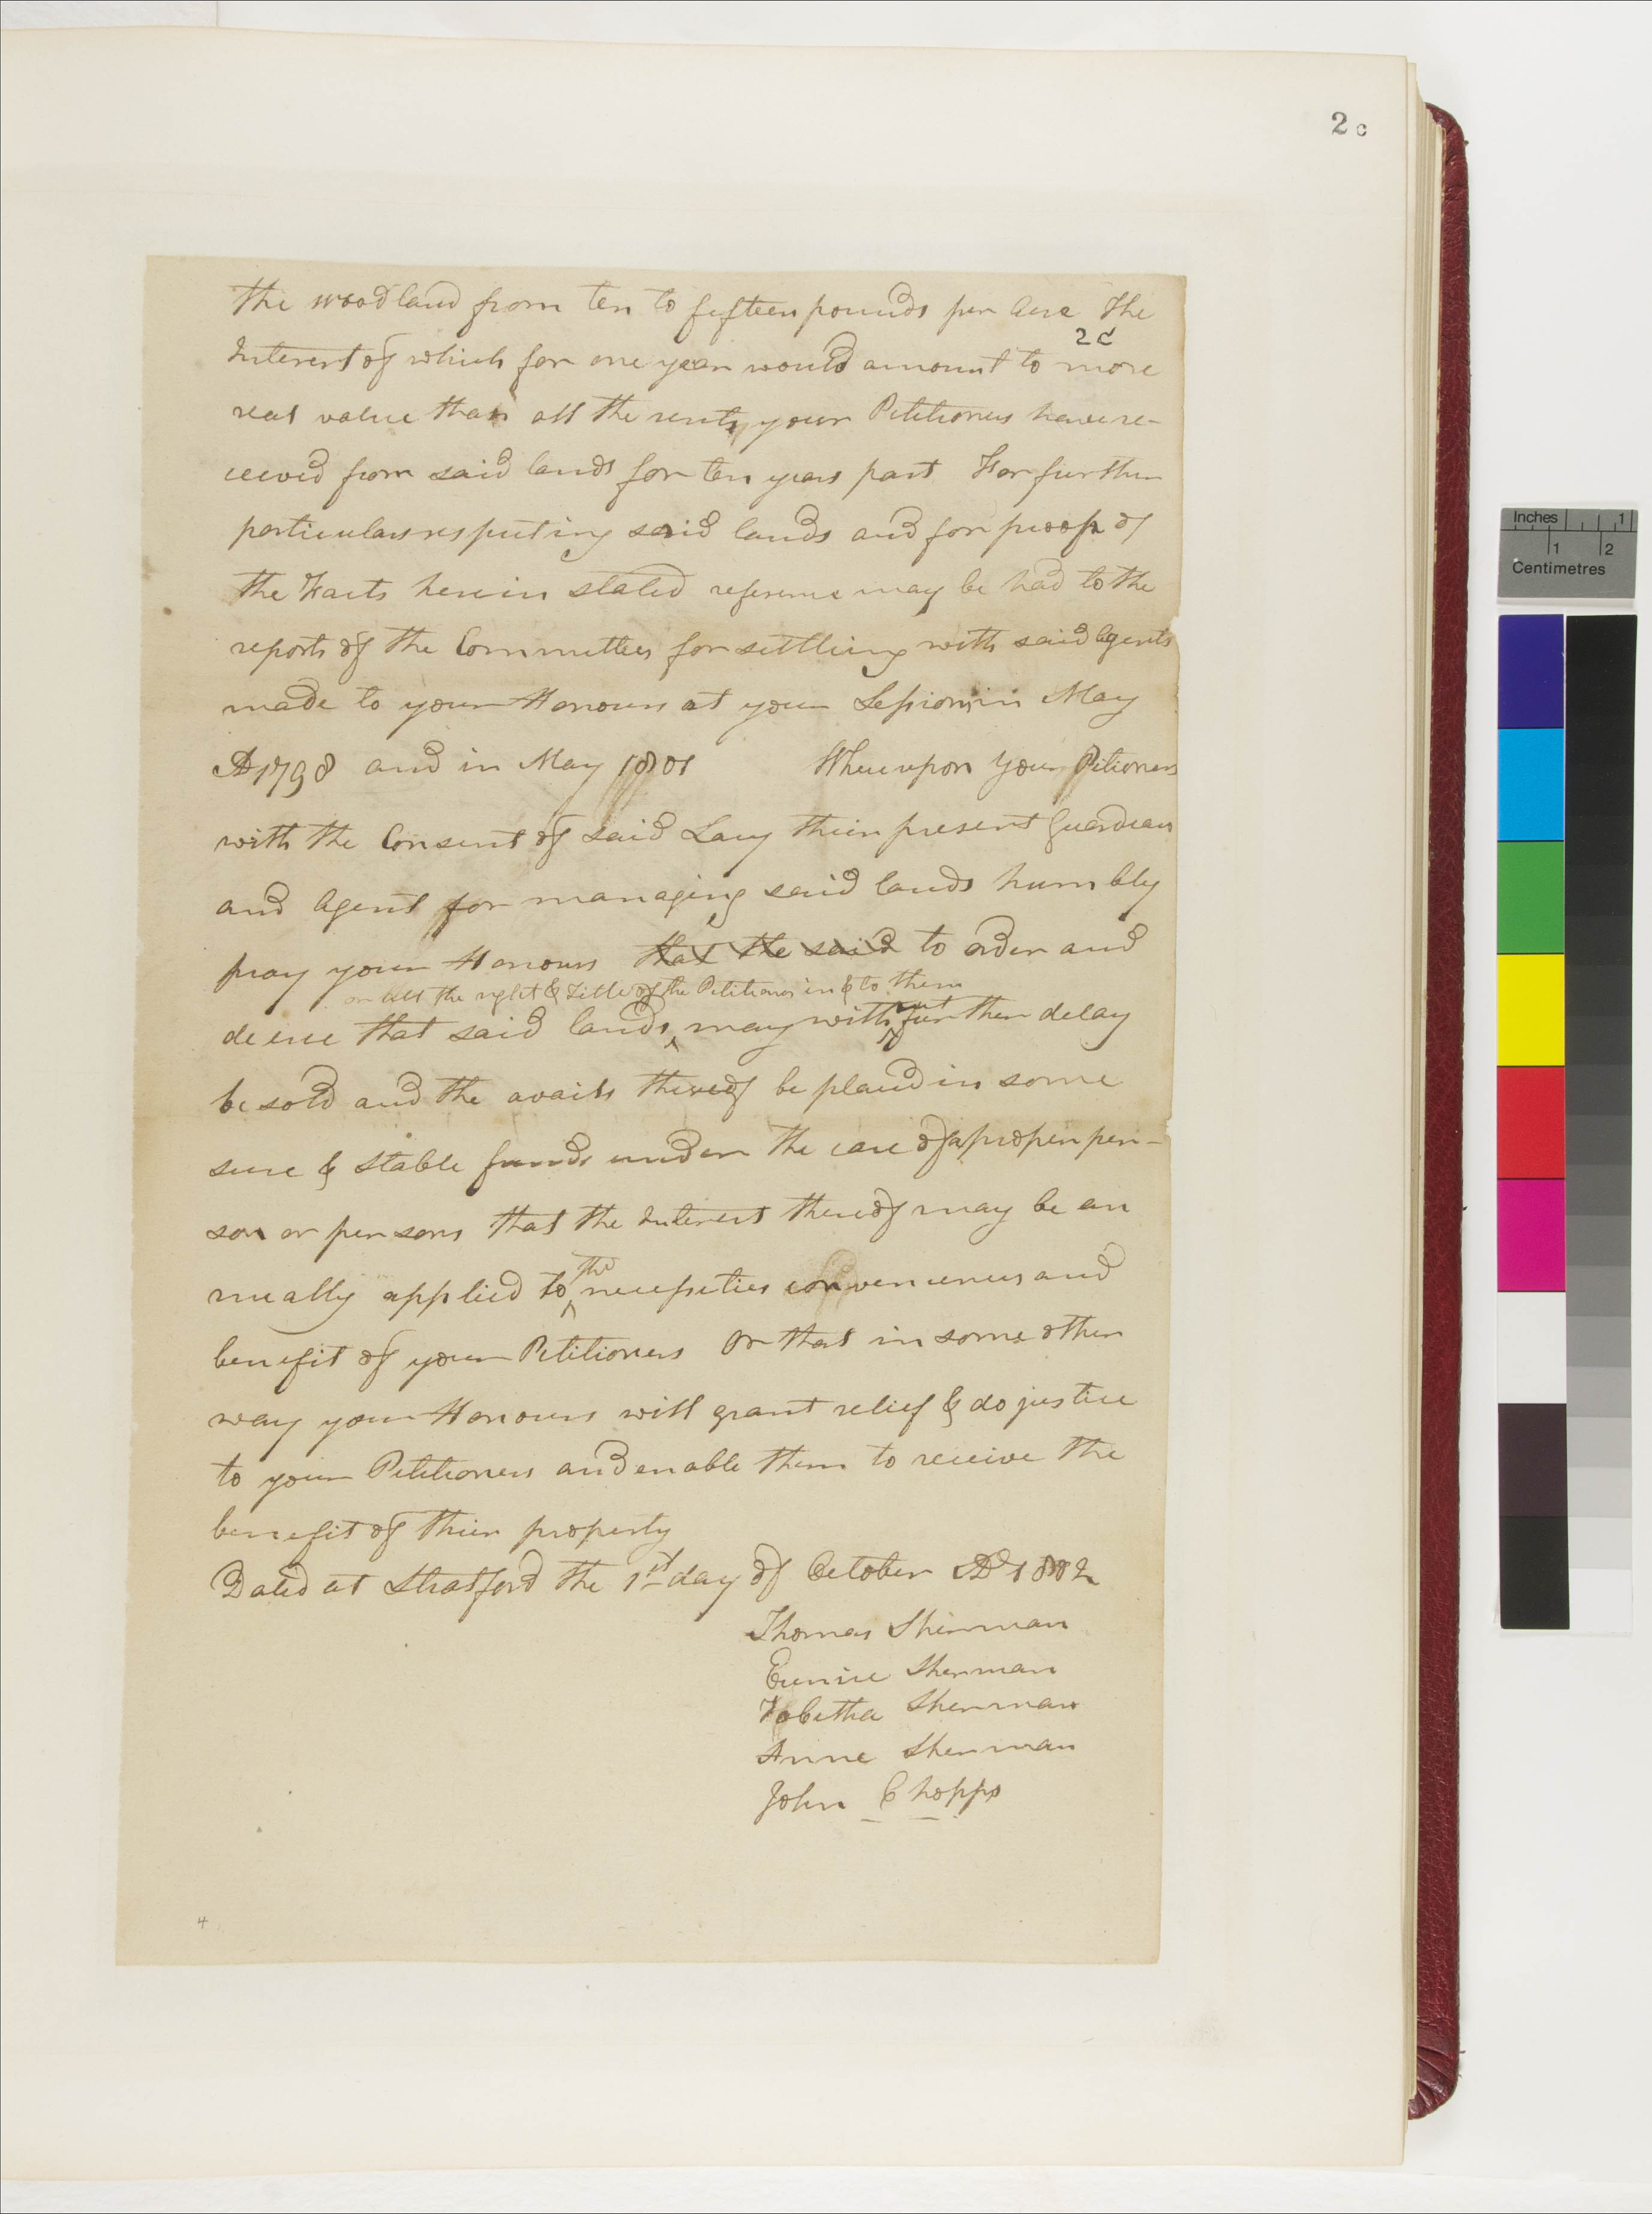 2 c
the woodland from ten to fifteen pounds per Acre The
2 c
Interest of which for one year would amount to more
real value than all the rents your Petitioners have re-
ceived from said lands for ten years past For further
particulars respecting said lands and for proof of
the Facts herein stated reference may be had to the
reports of the Committees for settling with said Agents
made to your Honours at your Sessions in May
AD 1798 and in May 1801 Whereupon your Petitioners
with the Consent of said Lacy their present Guardian
and Agent for managing said lands humbly
pray your Honours that the said to order and
or all the right & Title of the Petitioners in & to them
decree that said lands may without further delay
be sold and the avails thereof be placed in some
sure & stable funds under the care of a proper per-
son or persons that the Interest thereof may be an
nually applied to the necessities conveniences and
benefit of your Petitioners Or that in some other
way your Honours will grant relief & do justice
to your Petitioners and enable them to receive the
benefit of their property
Dated at Stratford the 1st day of October AD 1802
Thomas Sherman
Eunice Sherman
Tabitha Sherman
Anne Sherman
John Chopps
4
Inches 1
1 2
Centimetres